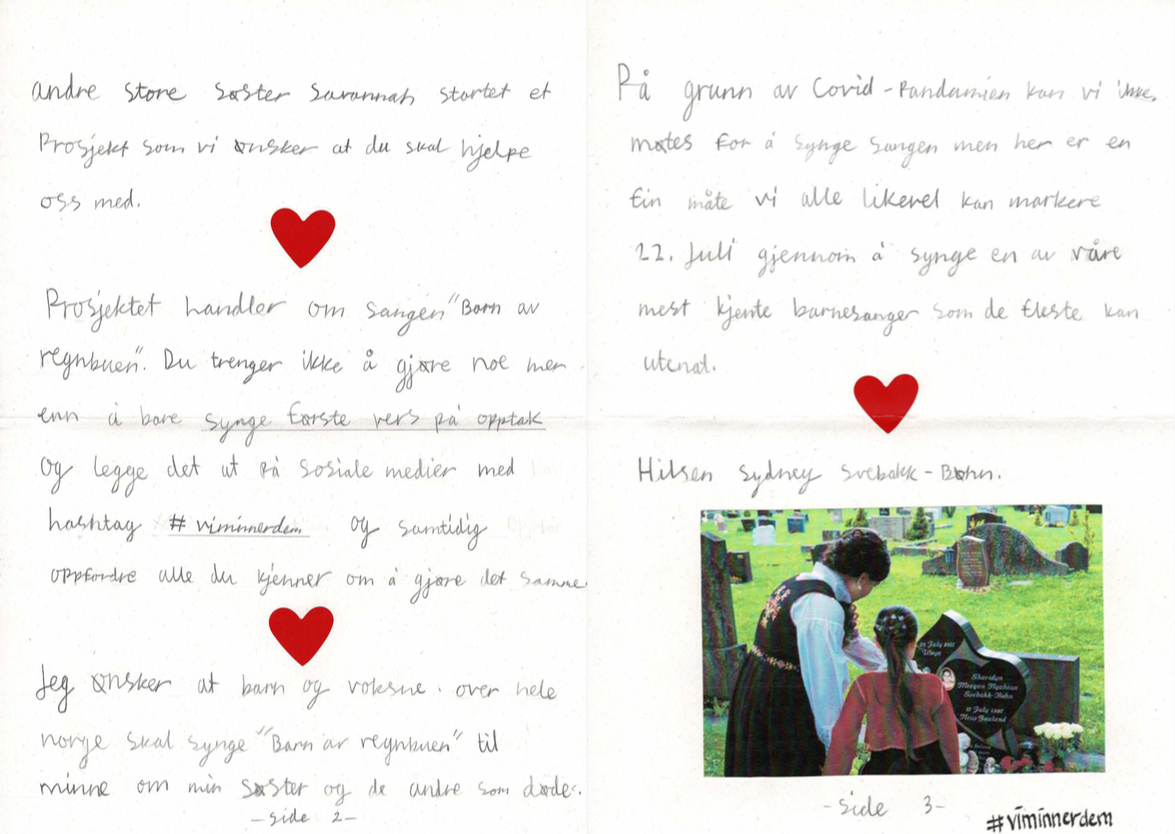 andre store søster Savannah startet et
Prosjekt som vi ønsker at du skal hjelpe
oss med.
Prosjektet handler om sangen "Barn av
regnbuen". Du trenger ikke å gjøre noe mer
enn å bare synge første vers på opptak
og legge det ut på sosiale medier med
hashtag #viminnerdem og samtidig
oppfordre alle du kjenner om å gjøre det samme
Jeg ønsker at barn og voksne. over hele
norge skal synge "Barn av regnbuen" til
minne om min søster og de andre som døde.
- side 2 -
På grunn av Covid-Pandamien kan vi ikke
møtes for å synge sangen men her er en
fin måte vi alle likevel kan markere
22. Juli gjennom å synge en av våre
mest kjente barnesanger som de fleste kan
utenat.
Hilsen Sydney Svebakk-Bøhn.
22 July 2011
Utøya
Sharidyn
Meegan Ngahiwi
Svebakk-Bøhn
17 July 1997
New Zealand
- Side 3 -
#viminnerdem